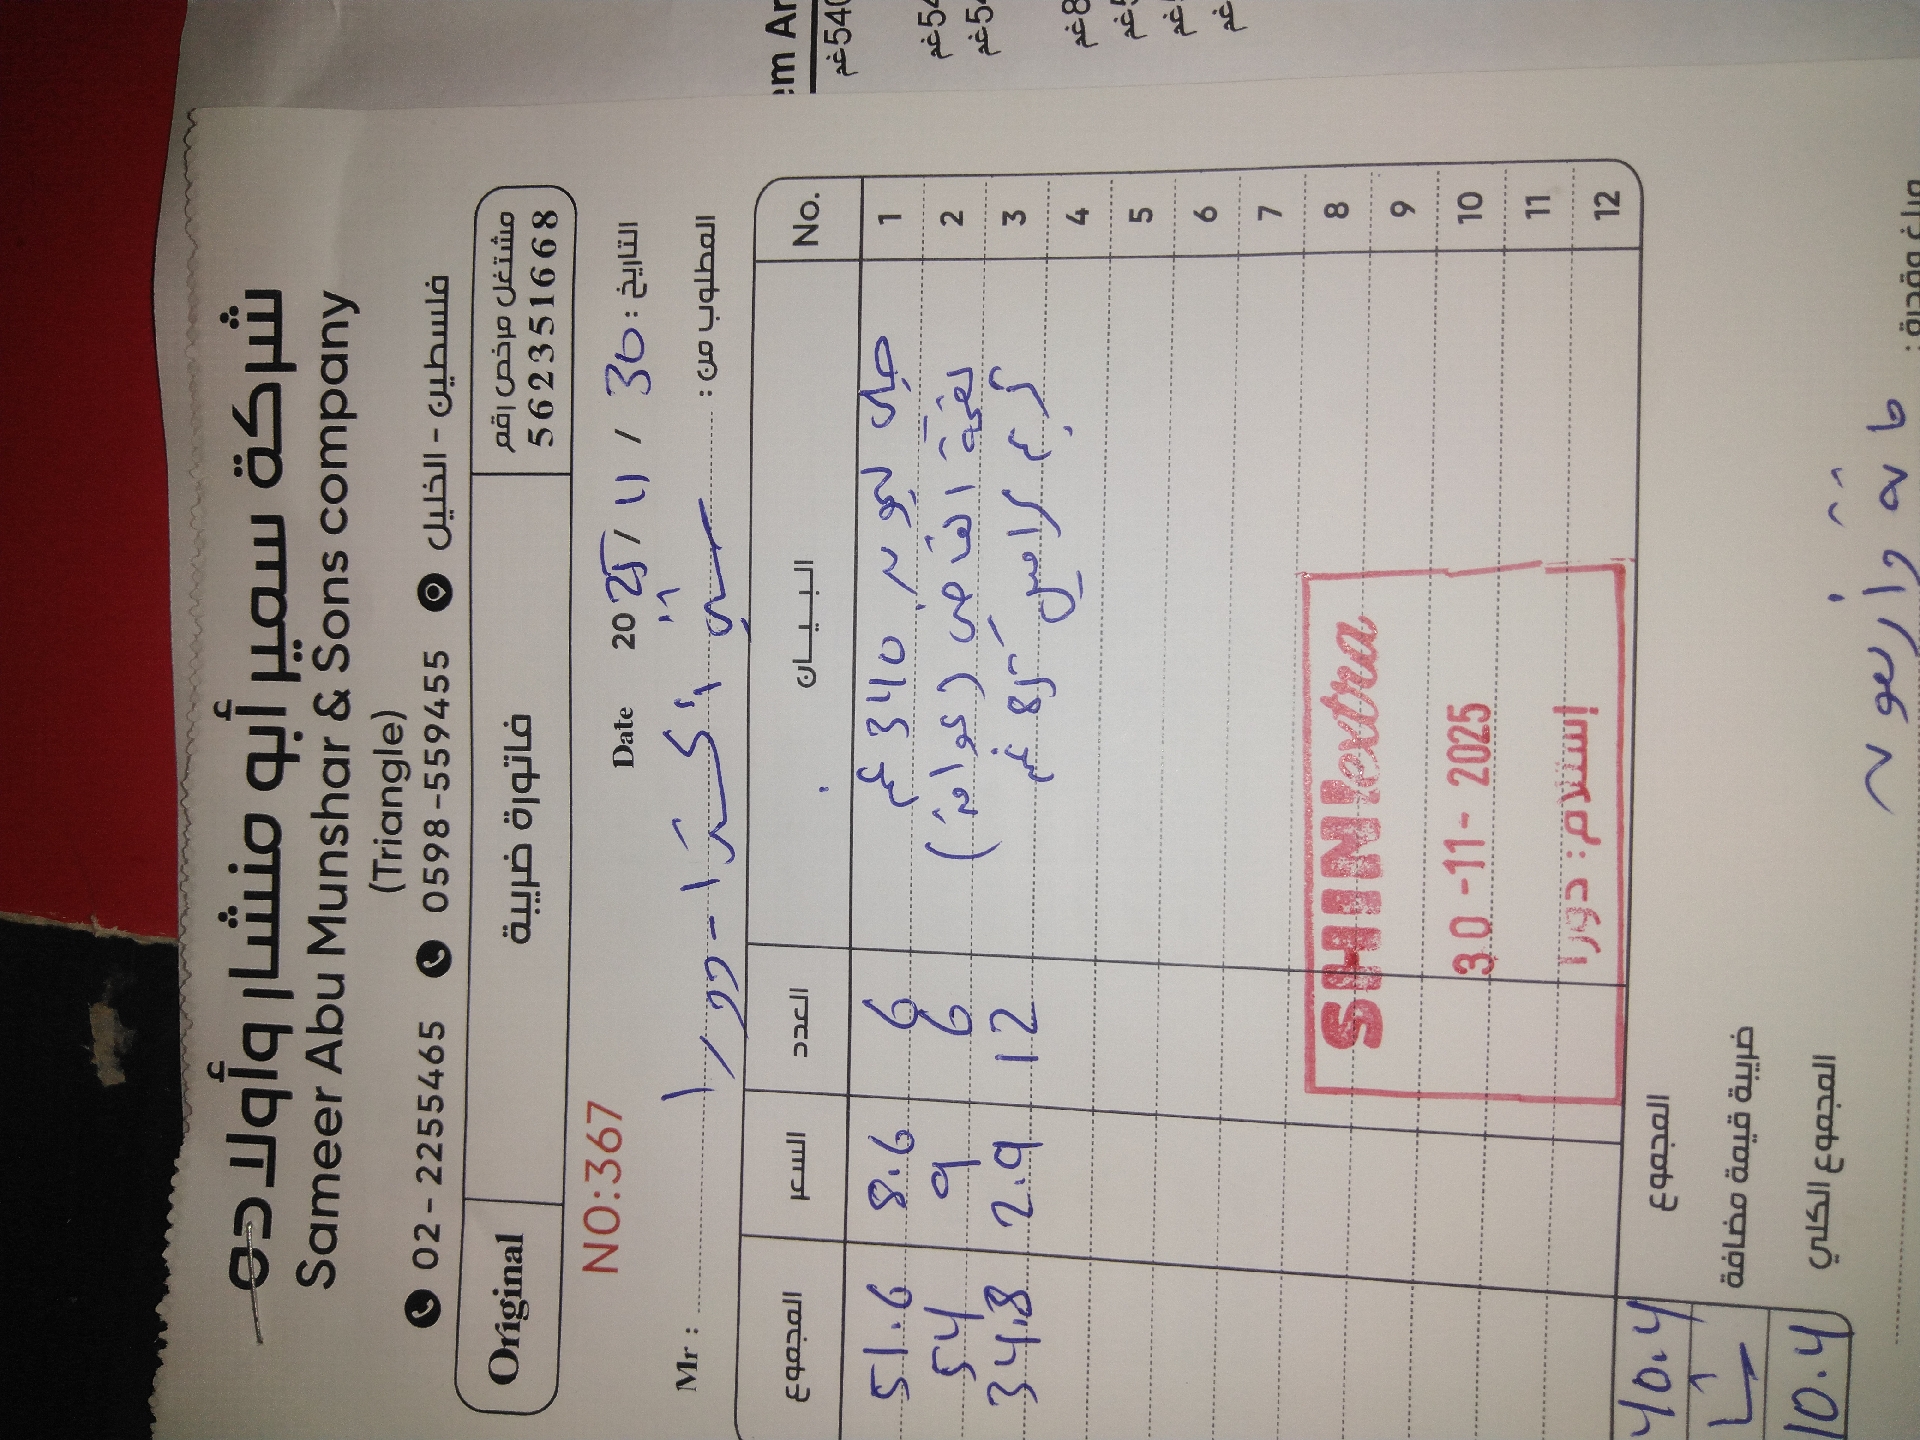 شركة سمير أبو منشار وأولاده
Sameer Abu Munshar & Sons company
(Triangle)
02-2255465 0598-559455 فلسطين - الخليل
Original فاتورة ضريبة مشتغل مرخص رقم
562351668
NO:367 Date 2025/11/30 التاريخ:
Mr: المطلوب من: اكسترا - دورا
المجموع السعر العدد البيان No.
51.6 8.6 6 جلي ليمون 340 غم 1
54 9 6 2
34.8 2.9 12 كريم كراميل 80 غم 3
4
5
6
7
8
9
10
11
12
SHINI extra
30-11-2025
إستلام: دورا
40.4 المجموع
ضريبة قيمة مضافة
10.4 المجموع الكلي
مبلغ وقدره:
مائة وأربعون
em Ar